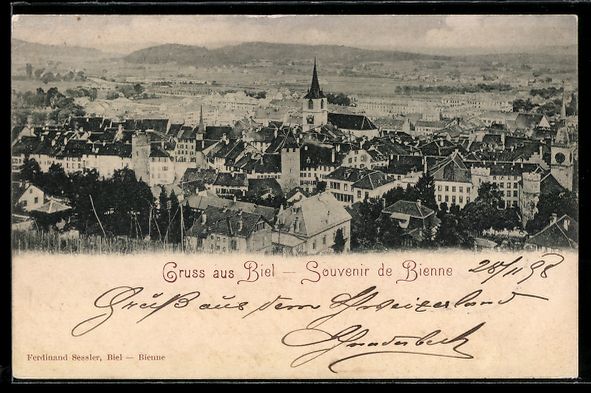 Gruss aus Biel — Souvenir de Bienne 28/11 98
Gruß aus dem Schweizerland
Ferdinand Sessler, Biel — Bienne